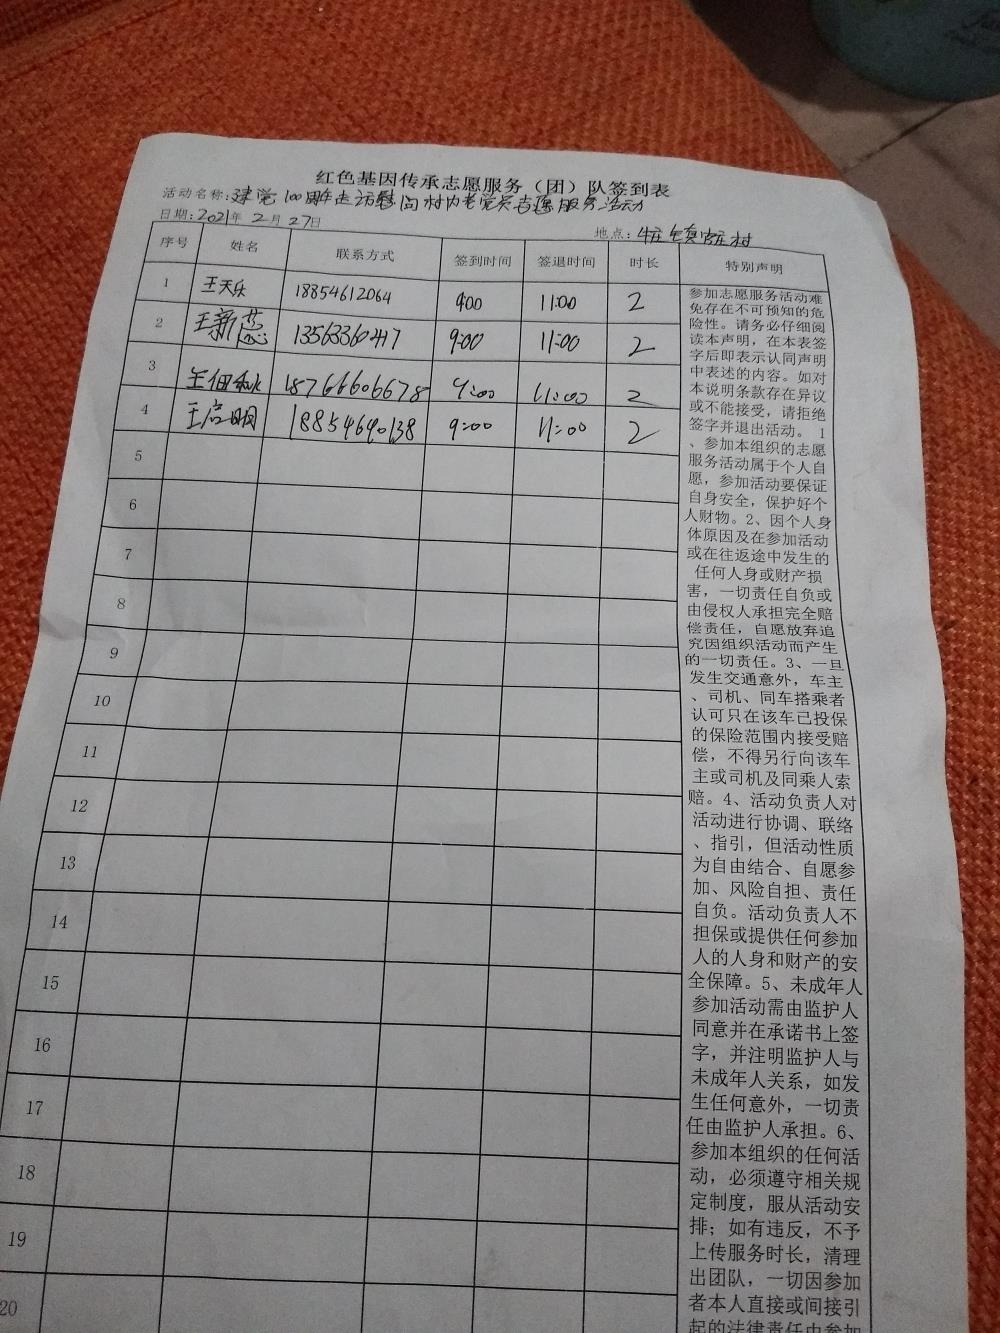 红色基因传承志愿服务（团）队签到表
活动名称:建党100周年走访慰问村内老党员志愿服务活动
日期:2021年2月27日
地点:牛庄镇 村
序号 姓名 联系方式 签到时间 签退时间 时长 特别声明
1 王天乐 18854612064 9:00 11:00 2
2 王新蕊 13563360417 9:00 11:00 2
3 王佃 18766606678 9:00 11:00 2
4 王启明 18854690138 9:00 11:00 2
5
6
7
8
9
10
11
12
13
14
15
16
17
18
19
20
参加志愿服务活动难
免存在不可预知的危
险性。请务必仔细阅
读本声明，在本表签
字后即表示认同声明
中表述的内容。如对
本说明条款存在异议
或不能接受，请拒绝
签字并退出活动。 1
、参加本组织的志愿
服务活动属于个人自
愿，参加活动要保证
自身安全，保护好个
人财物。2、因个人身
体原因及在参加活动
或在往返途中发生的
任何人身或财产损
害，一切责任自负或
由侵权人承担完全赔
偿责任，自愿放弃追
究因组织活动而产生
的一切责任。3、一旦
发生交通意外，车主
、司机、同车搭乘者
认可只在该车已投保
的保险范围内接受赔
偿，不得另行向该车
主或司机及同乘人索
赔。4、活动负责人对
活动进行协调、联络
、指引，但活动性质
为自由结合、自愿参
加、风险自担、责任
自负。活动负责人不
担保或提供任何参加
人的人身和财产的安
全保障。5、未成年人
参加活动需由监护人
同意并在承诺书上签
字，并注明监护人与
未成年人关系，如发
生任何意外，一切责
任由监护人承担。6、
参加本组织的任何活
动，必须遵守相关规
定制度，服从活动安
排；如有违反，不予
上传服务时长，清理
出团队，一切因参加
者本人直接或间接引
起的法律责任由参加